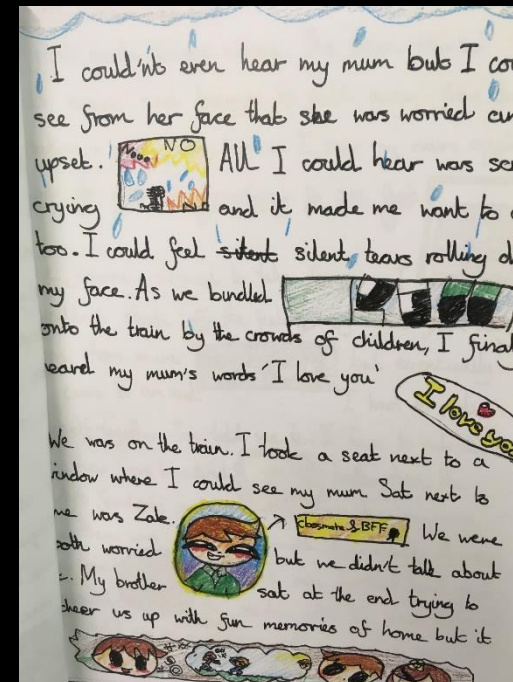 I could'nt even hear my mum but I
see from her face that she was worried
upset. Nooo NO All I could hear was
crying and it made me want to
too. I could feel silent silent tears rolling
my face. As we bundled
onto the train by the crowds of children, I
heard my mum's words 'I love you'
I love you
We was on the train. I took a seat next to a
window where I could see my mum Sat next to
me was Zak. classmate & BFF We were
both worried but we didn't talk about
My brother sat at the end trying to
cheer us up with fun memories of home but it